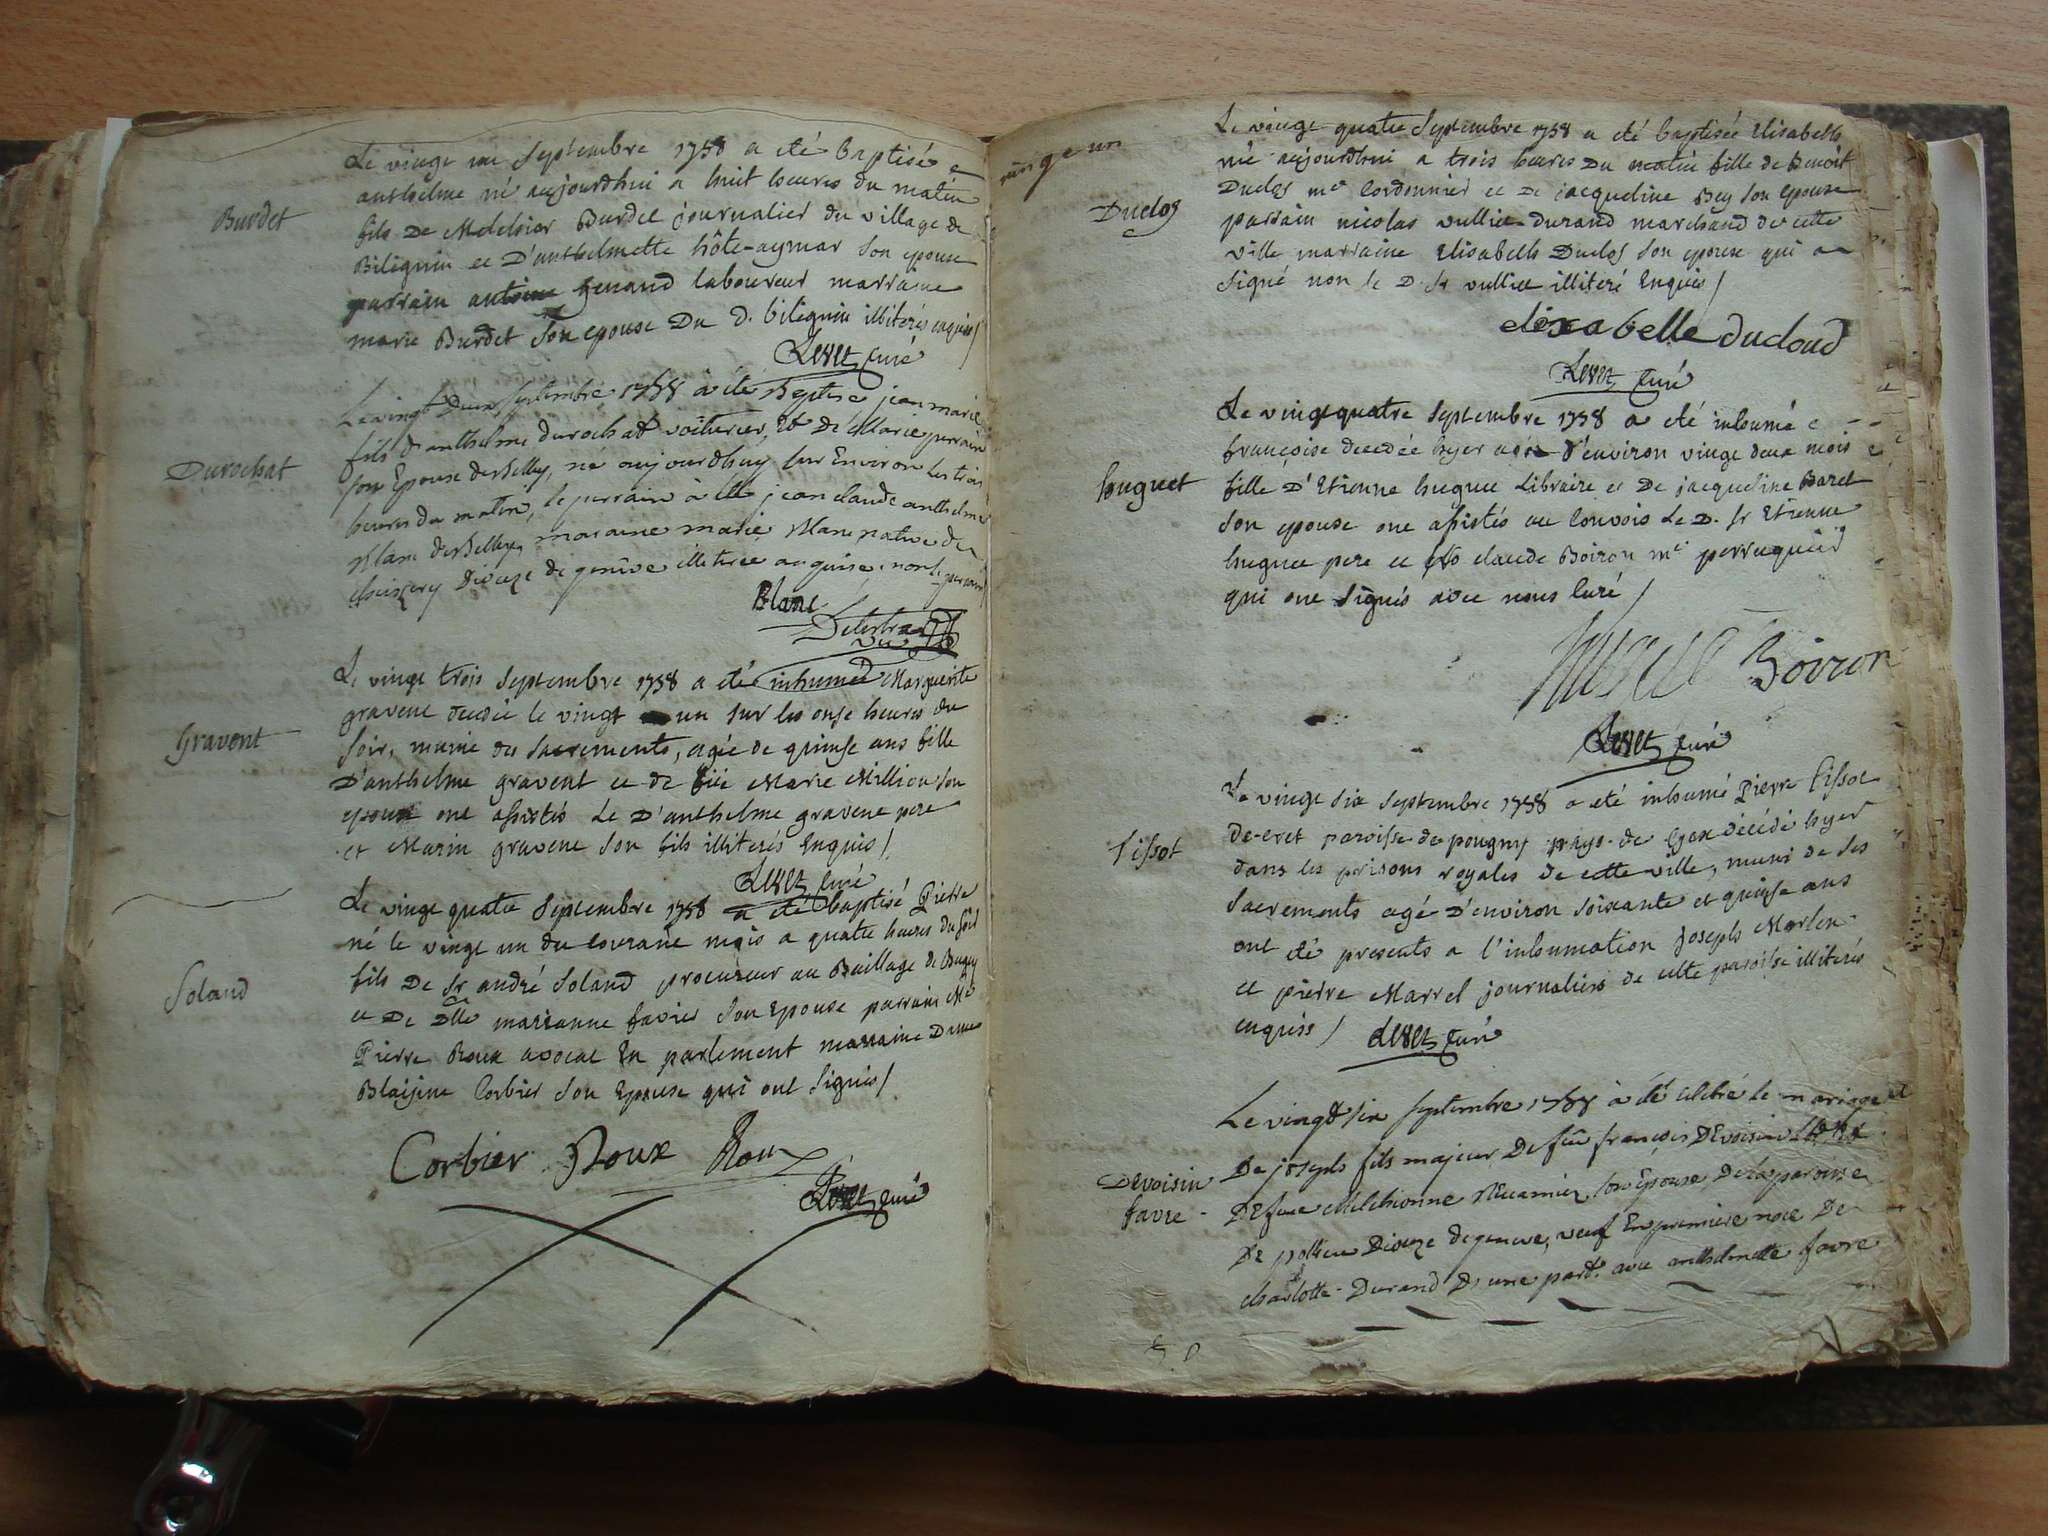 Burdet
Le vingt un Septembre 1758 a eté Baptisé
anthelme né aujourdhui a huit heures du matin
fils De Melchior Burdet journalier du village de
Bilignin et D'anthelmette hôte-aymar son epouse
parrain antoine genand laboureur marraine
marie Burdet son epouse Du d. bilignin illiterés enquis /
Levet curé
Durochat
Le vingt Deux Septembre 1758 à été Baptisé jean marie
fils d'anthelme durochat voiturier, Et de Marie
son Epouse de Belley, né aujourdhuy sur Environ les trois
heures du matin, le parrain à été jean claude anthelme
Blanc de Belley, maraine marie Blanc native de
Dioceze de genève illiteree enquise, non le parrain /
Blanc
Gravent
Le vingt trois Septembre 1758 a eté inhumée Marguerite
gravent decedée le vingt un sur les onse heures du
soir, munie des Sacrements, agée de quinse ans fille
D'anthelme gravent et de feüe Marie Million son
epouse ont assistés Le D'anthelme gravent pere
et Marin gravent son fils illiterés Enquis /
Levet curé
Soland
Le vingt quatre Septembre 1758 a eté baptisé Pierre
né le vingt un du courant mois a quatre heures du soir
fils De Sr andré Soland procureur au Baillage de Bugey
et De Dlle marianne favier son Epouse parrain Me
Pierre Roux avocat En parlement marraine Dame
Blaisine Corbier son Epouse qui ont signés /
Corbier Roux Roux
Levet curé
vingt un
Duclos
Le vingt quatre Septembre 1758 a eté baptisée Elisabeth
née aujourdhui a trois heures Du matin fille de Benoit
Duclos me Cordonnier et De jacqueline Bey son epouse
parrain nicolas vulliet-durand marchand de cette
ville marraine Elisabeth Duclos son epouse qui a
signé non le D. Sr vulliet illiteré Enquis /
elisabelle ducloud
Levet curé
huguet
Le vingt quatre Septembre 1758 a eté inhumé e
françoise decedée hyer agée D'environ vingt deux mois
fille D'Etienne huguet Libraire et De jacqueline Baret
son epouse ont assistés au Convois Le D. Sr Etienne
huguet pere et claude Boiron me perruquier
qui ont signés avec nous Curé /
Boiron
Levet curé
Tissot
Le vingt six Septembre 1758 a eté inhumé Pierre Tissot
De-cret paroisse de pougny pays-de Gex décédé hyer
dans les prisons royales de cette ville, muni de ses
Sacrements agé D'environ soixante et quinse ans
ont été presents a l'inhumation joseph Marlen
et pierre Marrel journaliers de cette paroisse illiterés
enquiss / Levet curé
Devoisin
favre -
Le vingt six Septembre 1758 à été celebré le mariage
De joseph fils majeur De feü françois Devoisin
De feue Melchionne son Epouse, De la paroisse
De Dioceze de geneve, veuf En premiere noce De
charlotte - Durand D'une part. avec anthelmette favre